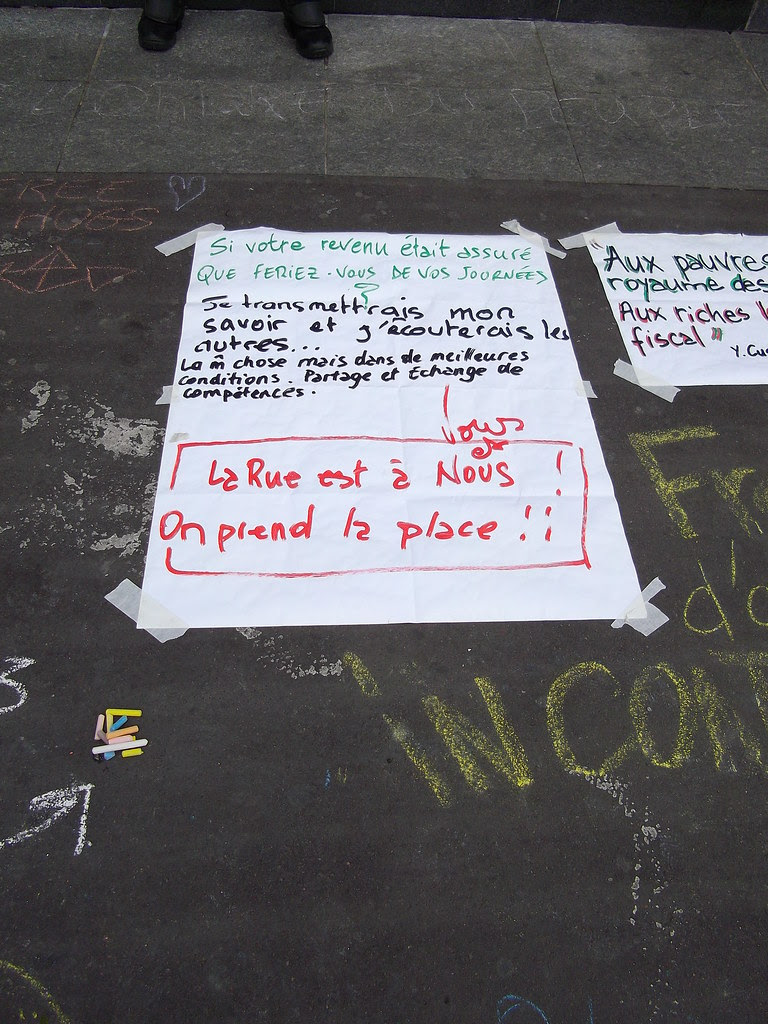 FREE
HUGS
Si votre revenu était assuré
QUE FERIEZ-VOUS DE VOS JOURNÉES
?
Je transmettrais mon
savoir et j'écouterais les
autres...
La m̂ chose mais dans de meilleures
conditions. Partage et Echange de
compétences.
Vous
La Rue est à Nous !
On prend la place !!
"Aux pauvres
royaume des
Aux riches
fiscal"
Y. Cu
Fr
d'
iNCONT
3